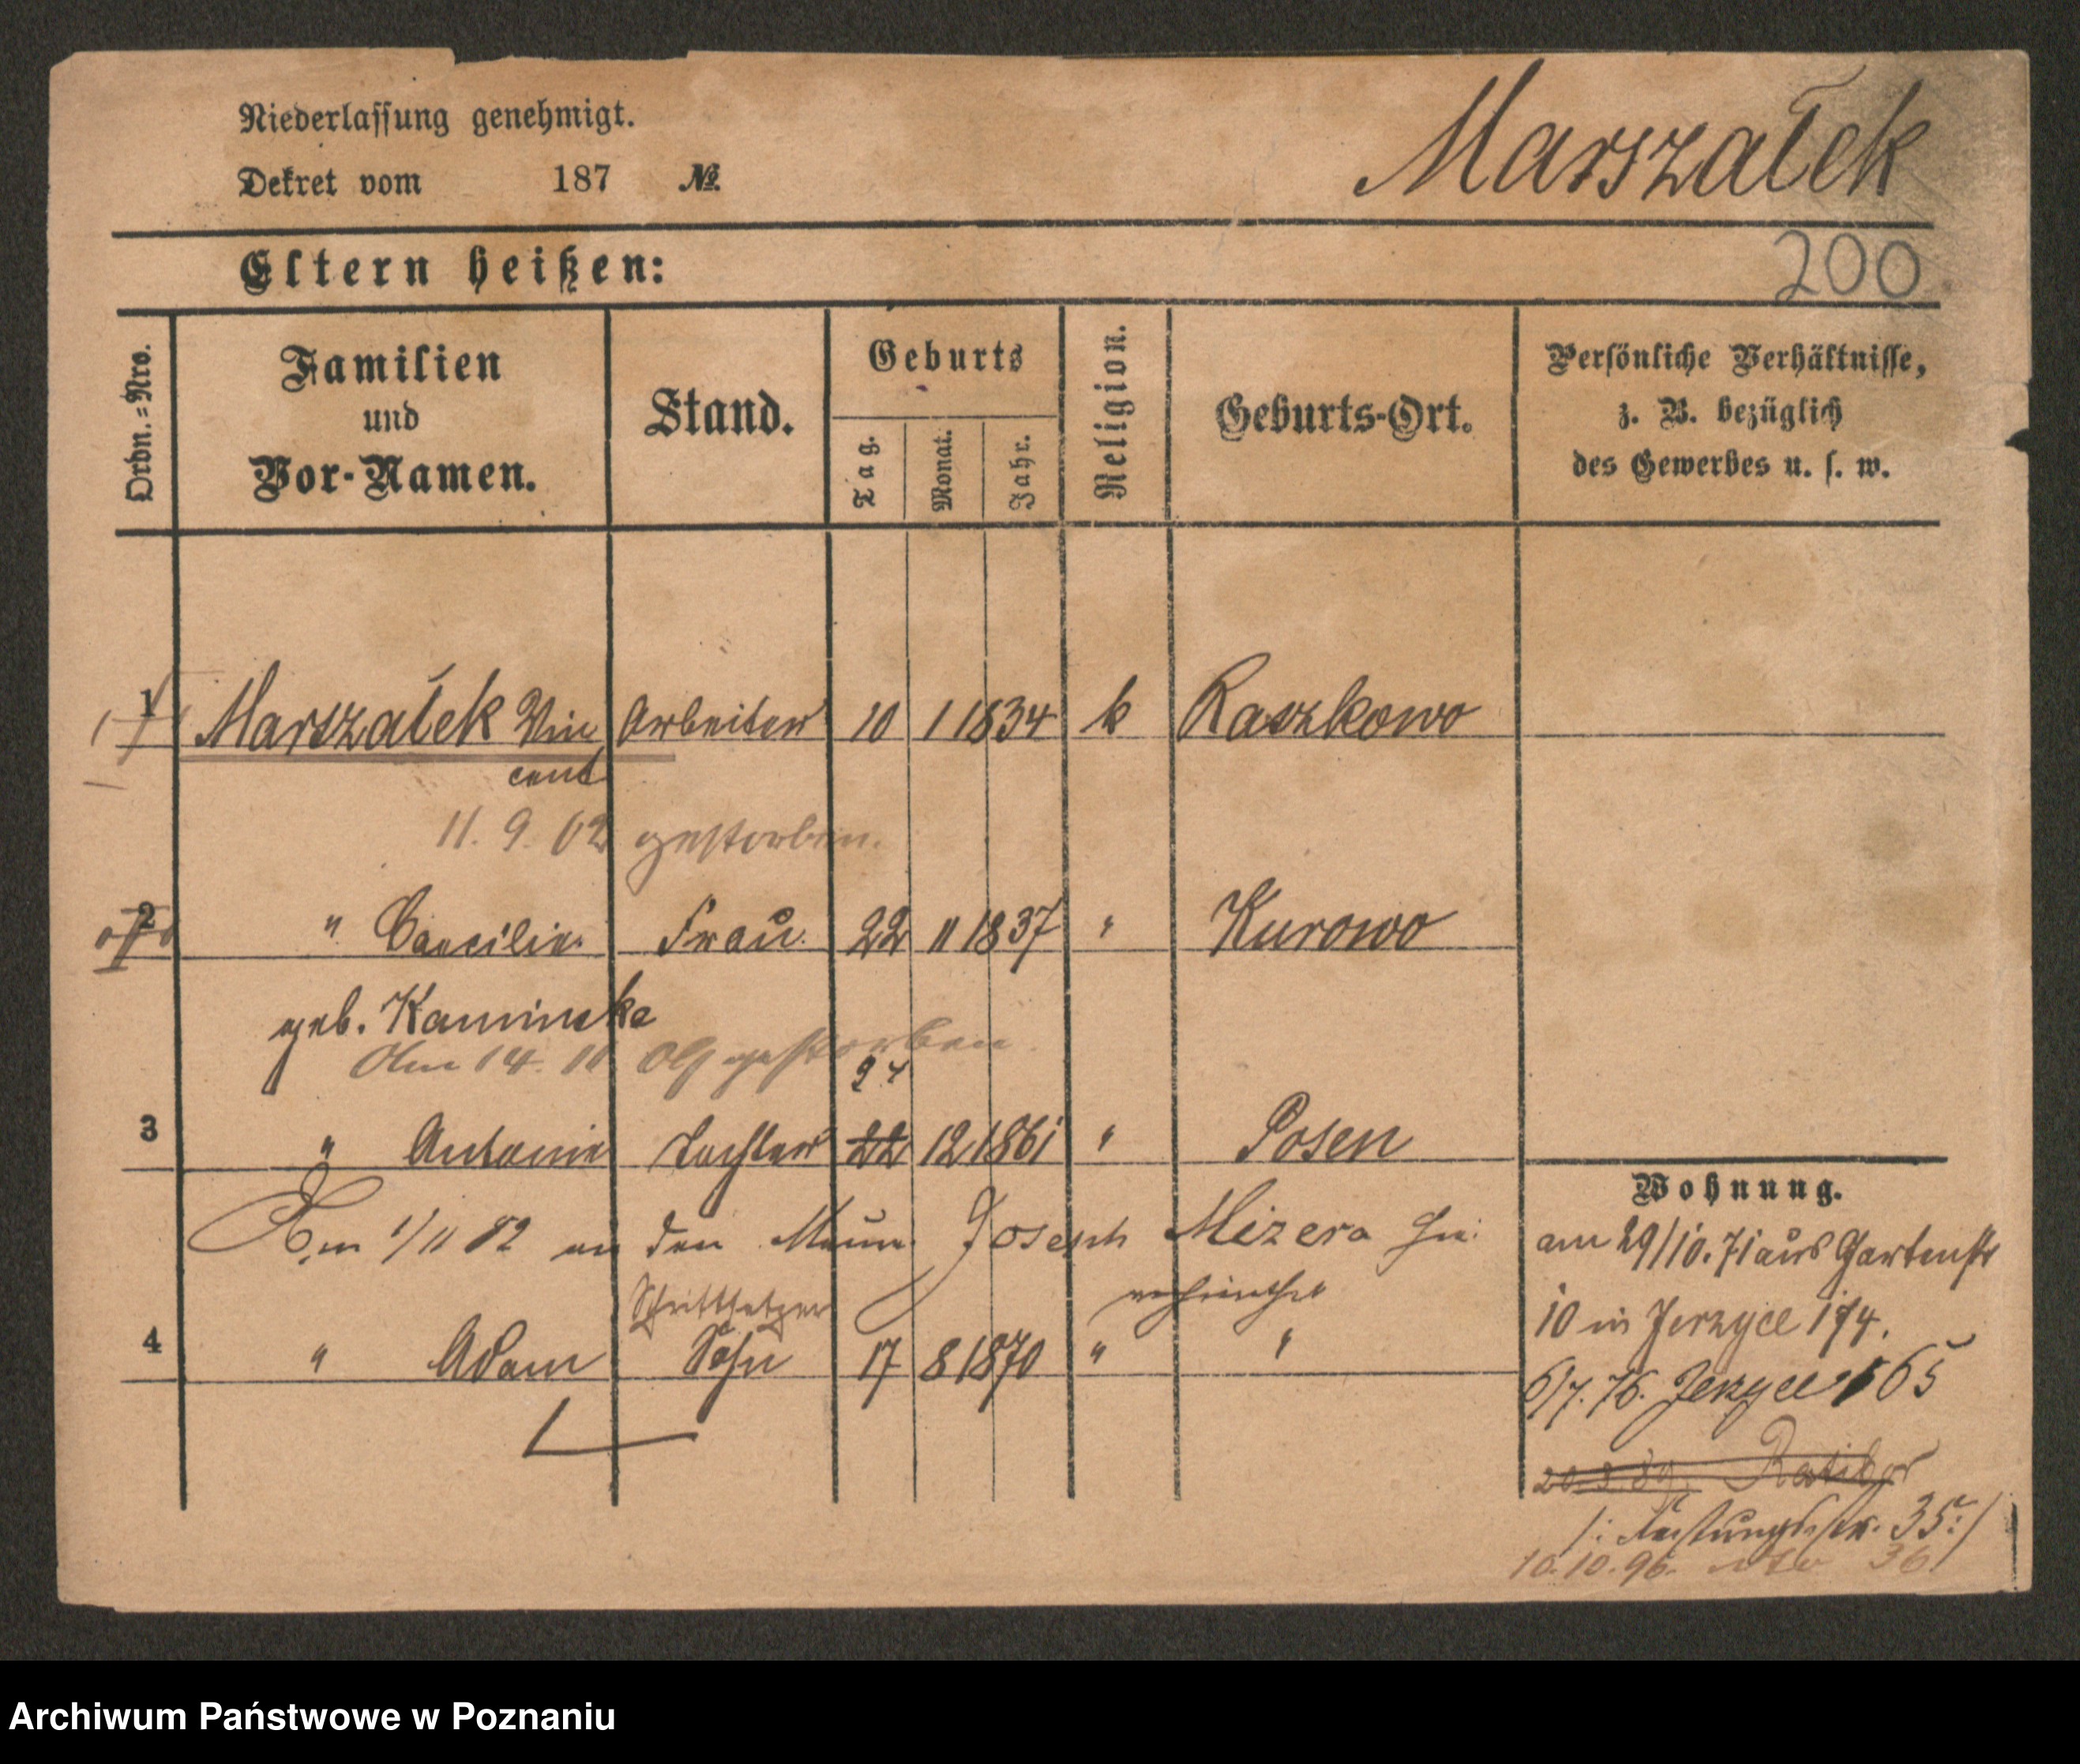 Niederlassung genehmigt.
Dekret vom 187 №.
Marszałek
Eltern heißen:
200
Ordn.=Nro.
Familien
und
Vor-Namen.
Stand.
Geburts
Tag.
Monat.
Jahr.
Religion.
Geburts-Ort.
Persönliche Verhältnisse,
z. B. bezüglich
des Gewerbes u. s. w.
1 Marszałek Vin Arbeiter 10 1 1834 k Raszkowo
cent
11. 9. 02 gestorben.
2 " Caecilie Frau 22 11 1837 " Kurowo
geb. Kaminska
14. 11 gestorben
24
3 " Antonie Tochter 22 12 1861 " Posen
Am 1/11 82 an den Maur. Joseph Mizera
verheirathet
Schriftsetzer
4 " Adam Sohn 17 8 1870 " "
Wohnung.
am 29/10. 71 aus Gartenstr
10 in Jerzyce 174.
6/7. 76. Jerzyce 165
20.3.89. Ratibor
/: Festungsstr. 35 :/
10.10.96. 36
Archiwum Państwowe w Poznaniu